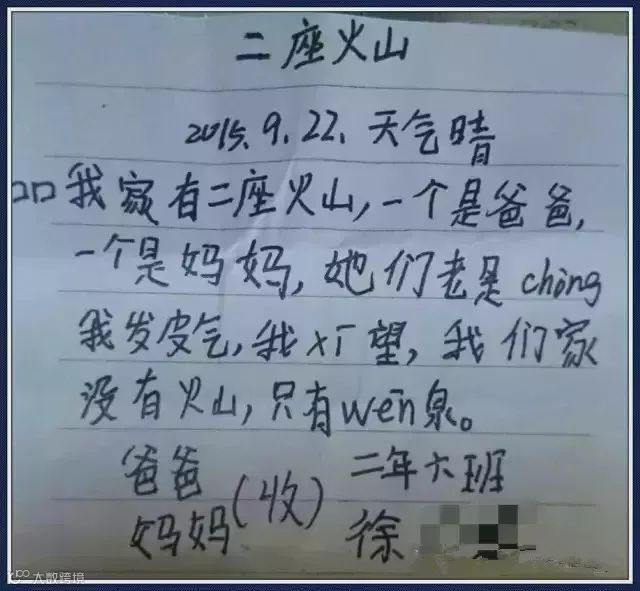 二座火山
2015.9.22.天气晴
口口我家有二座火山,一个是爸爸,
一个是妈妈,她们老是chòng
我发皮气,我xī望,我们家
没有火山,只有wēn泉。
爸爸
妈妈
(收)
二年六班
徐
大数跨境